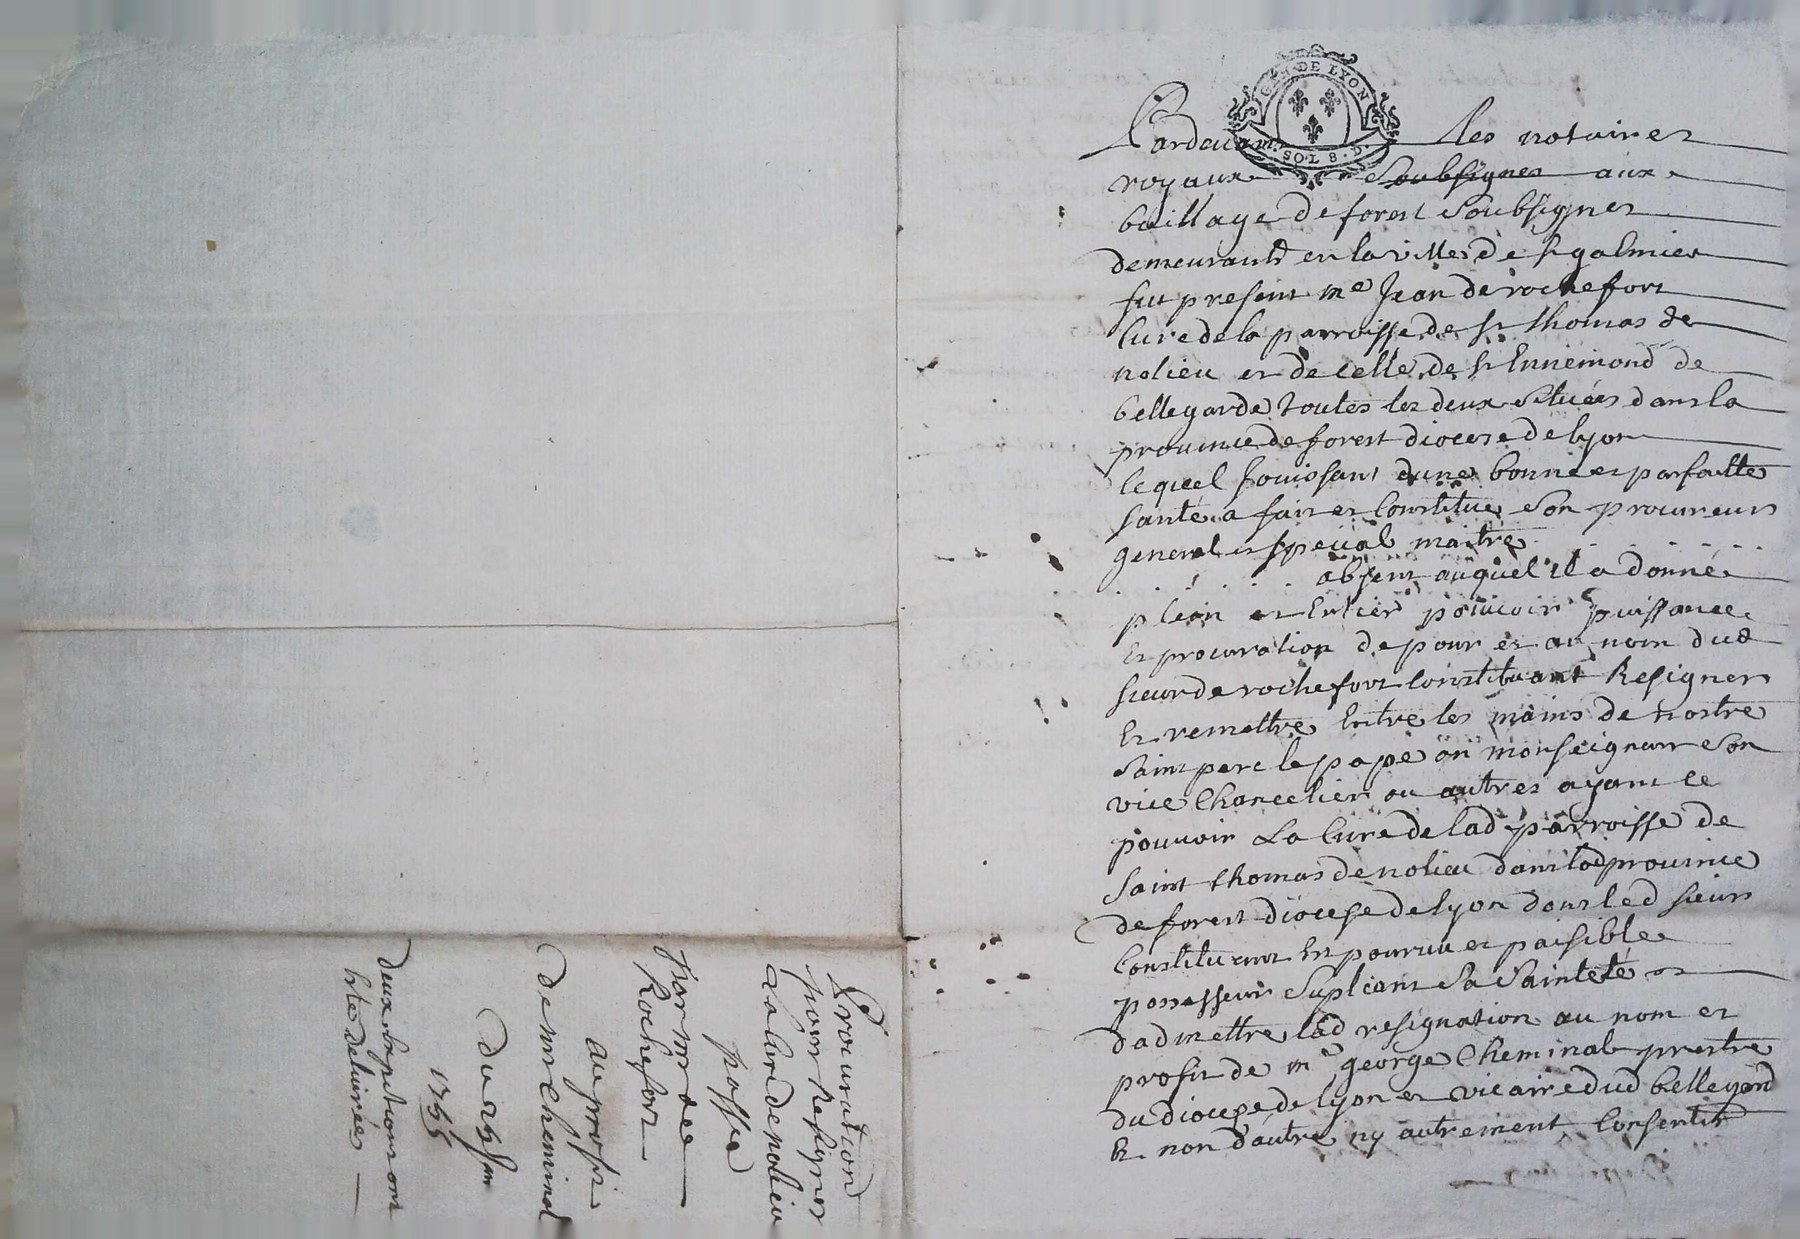 GEN DE LYON
SOL 8. D.
Pardevant les notaires
royaux Soubsignes aux
baillage de forest Soubsignes
demeurants en la ville de St galmier
fut present me Jean de rochefort
Curé de la parroisse de St thomas de
nolieu et de celle de St Ennemond de
bellegarde toutes les deux Situées dans la
province de forest diocese de lyon
lequel Jouissant dune bonne et parfaitte
santé a fait et Constitue Son procureur
general et special maitre
absent auquel il a donné
plein et Entier pouvoir puissance
Et procuration de pour et au nom dud
sieur de rochefort Constituant Resigner
Et remettre Entre les mains de nostre
Saint pere le pape ou monseigneur Son
vice Chancelier ou autres ayant ce
pouvoir La Cure de lad parroisse de
Saint thomas de nolieu dans lad province
de forest diocese de lyon dont led sieur
Constituant Est pourvu et paisible
possesseur Supliant Sa Sainteté
dadmettre lad resignation au nom et
profit de me george Cheminal prestre
du diocese de lyon et vicaire dud bellegard
Et non dautre ny autrement Consentir
Procuration
pour Resigner
La Cure de nolieu
passée
par mr de
Rochefort
au profit
de mr Cheminal
du 29 Jan
1755
deux Expeditions ont
été delivrées